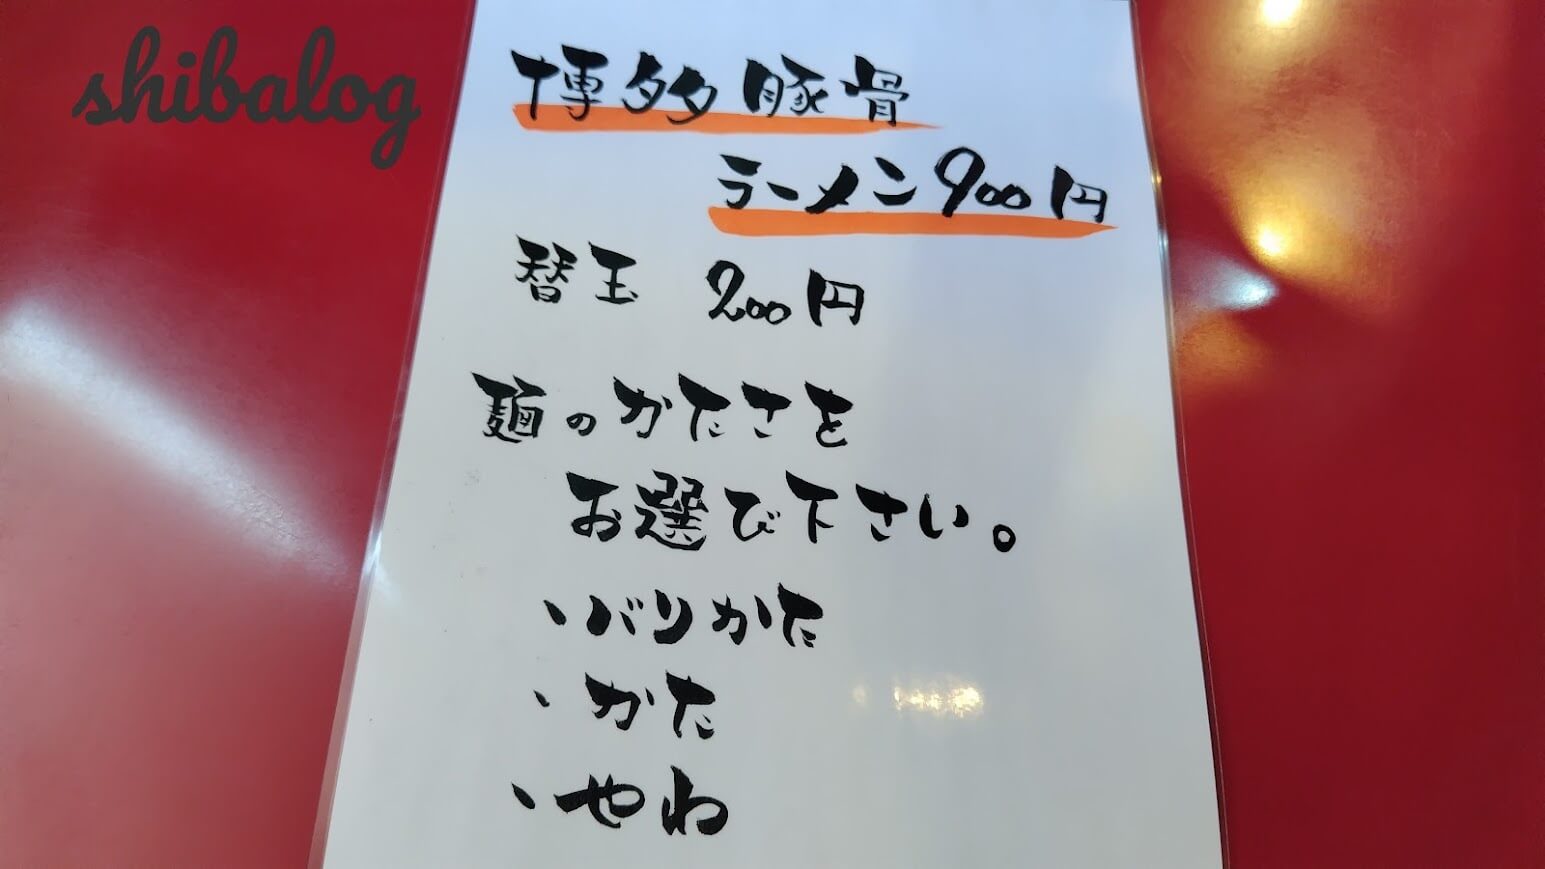 shibalog
博多豚骨
ラーメン900円
替玉 200円
麺のかたさを
お選び下さい。
・バリかた
・かた
・やわ